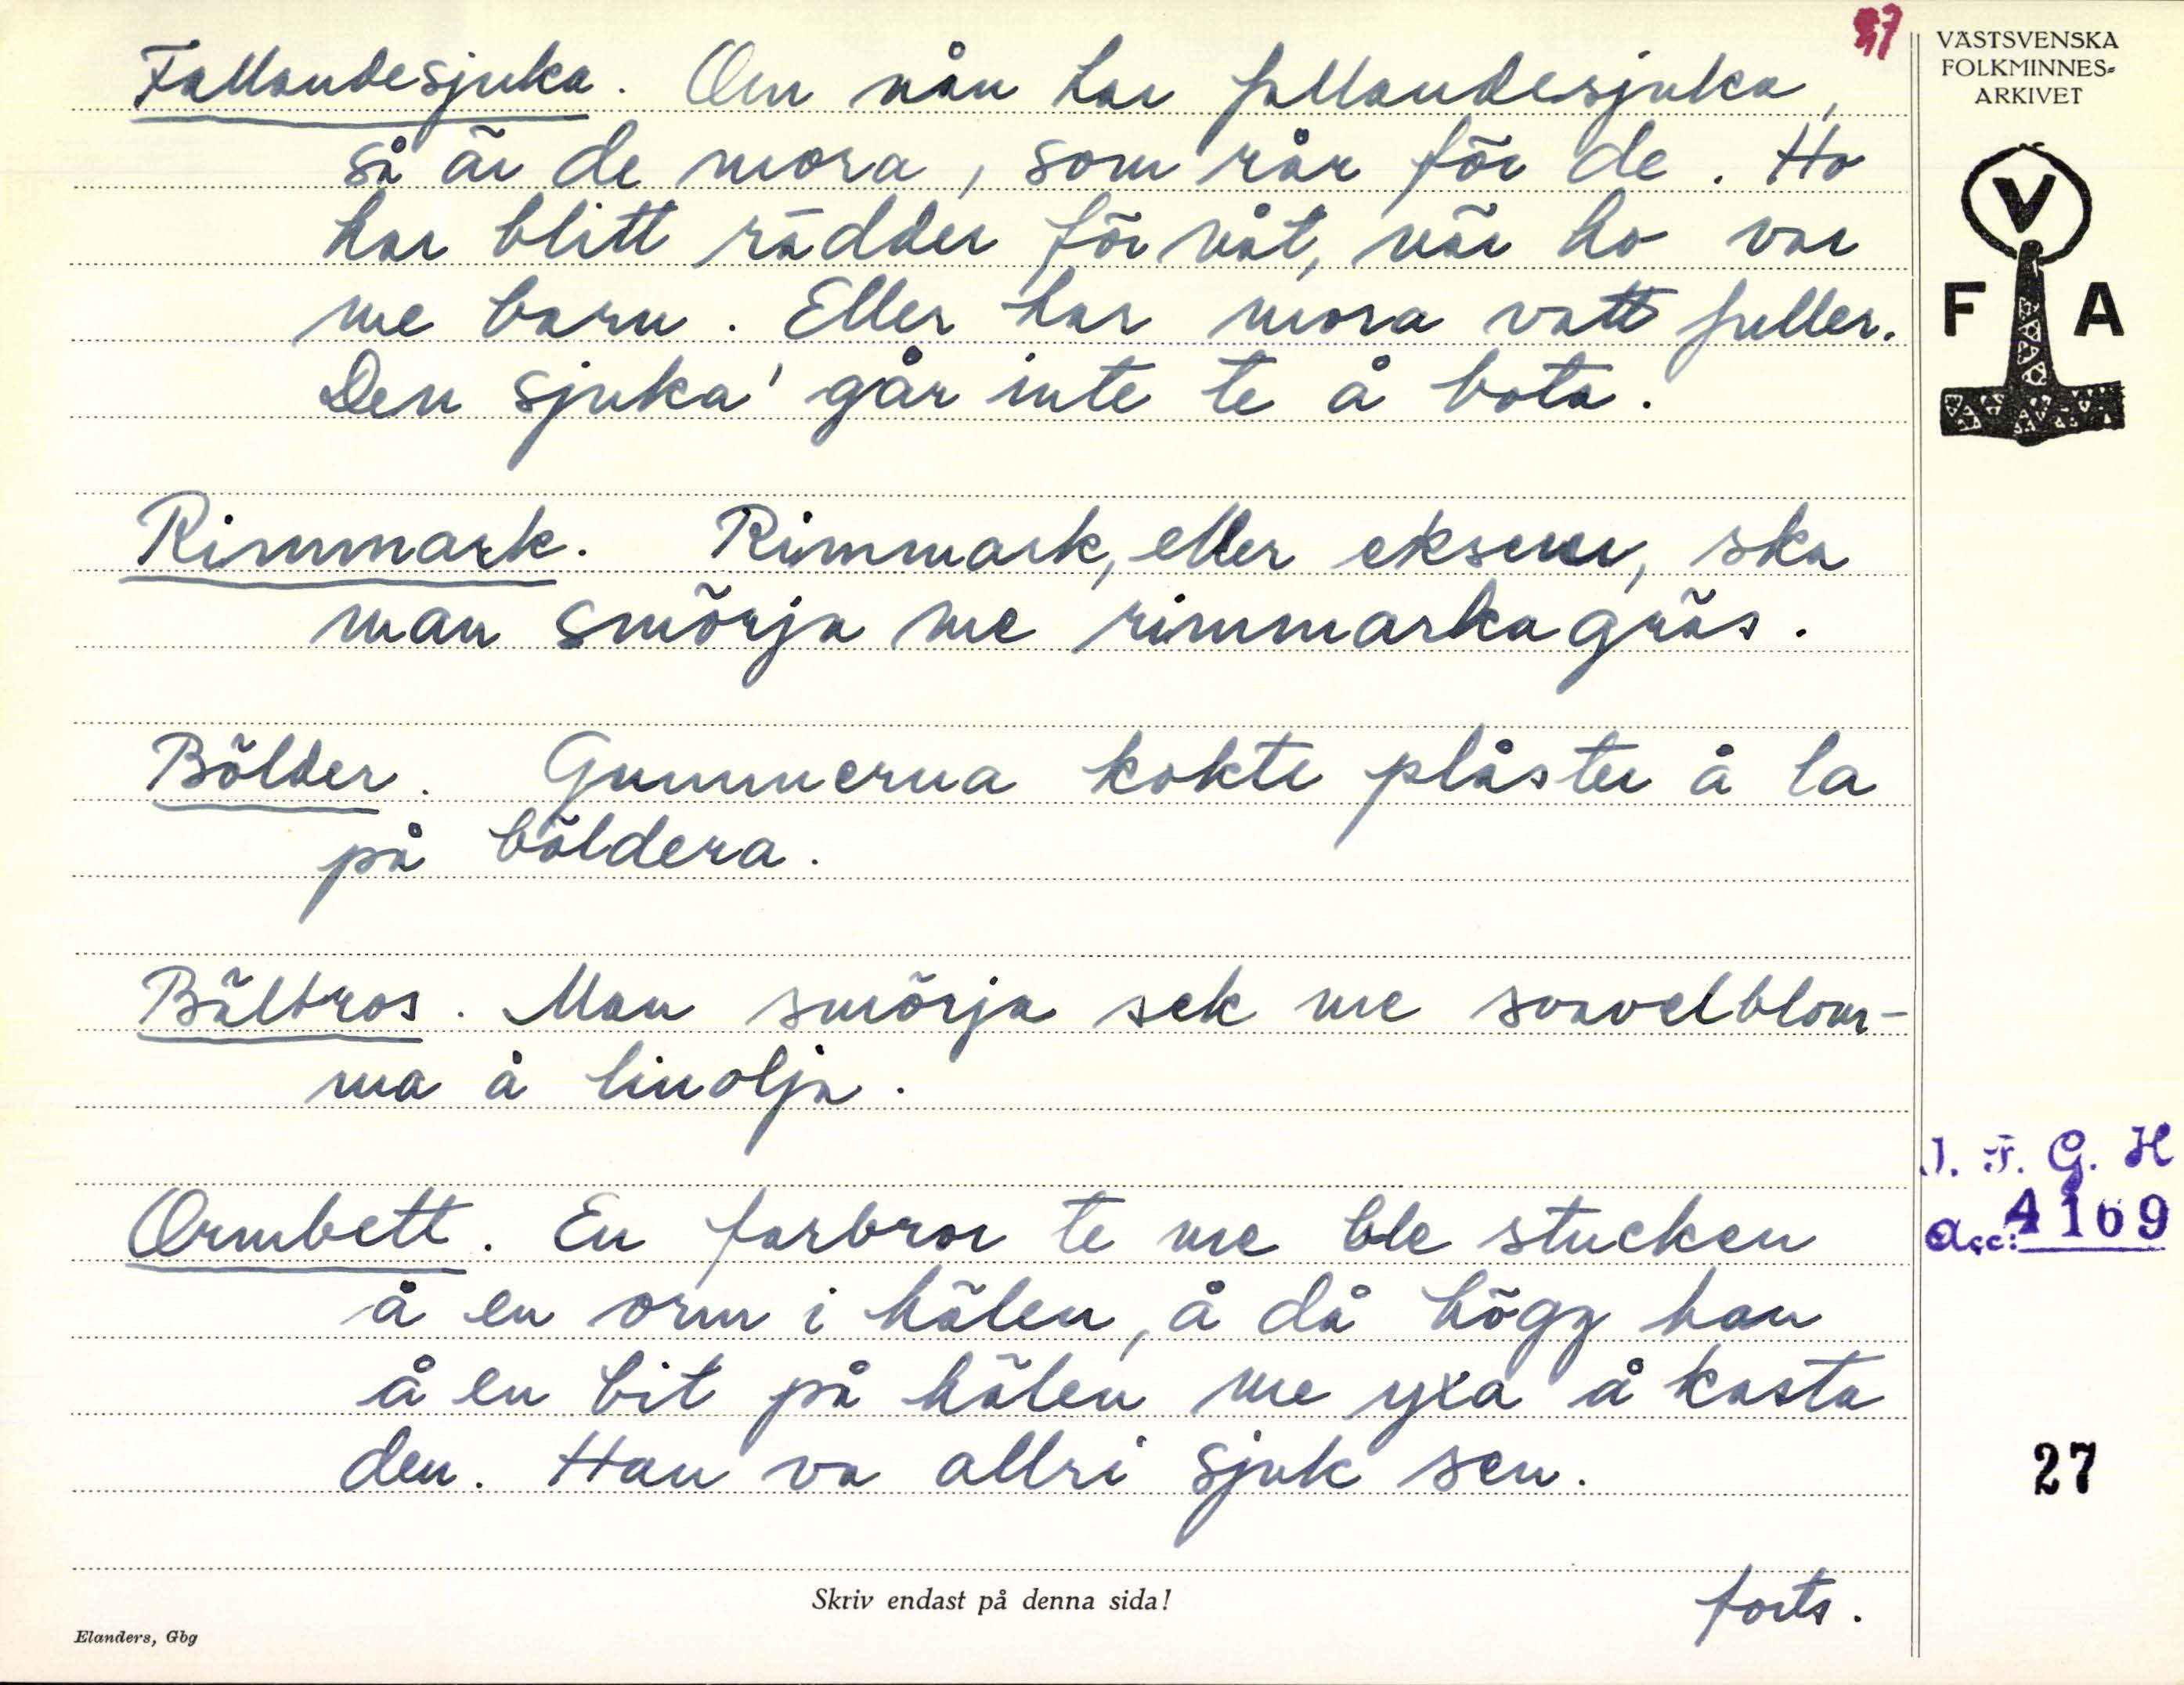 27
VÄSTSVENSKA
FOLKMINNES-
ARKIVET
V
F A
Fallandesjuka. Om nån har fallandesjuka,
så är de mora, som rår för de. Ho
har blitt rädder för nåt, när ho var
me barn. Eller har mora vatt fuller.
Den sjuka' går inte te å bota.
Rimmark. Rimmark, eller eksem, ska
man smörja me rimmarkagräs.
Bölder. Gummerna kokte plåster å la
på böldera.
Bältros. Man smörja sek me svavelblom-
ma å linolja.
Ormbett. En farbror te me ble stucken
å en orm i hälen, å då högg han
å en bit på hälen me yxa å kasta
den. Han va allri sjuk sen.
forts.
I. F. G. H
Acc: 4169
27
Skriv endast på denna sida!
Elanders, Gbg